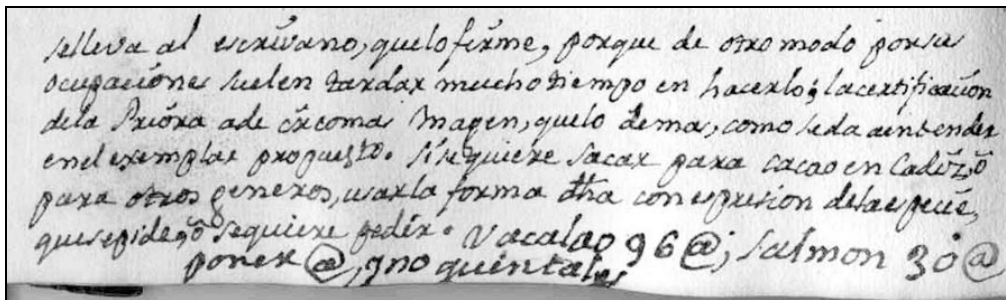 se lleva al escrivano, que lo firme, porque de otro modo por sus
ocupaciones suelen tardar mucho tiempo en hacerlo; la certificacion
dela Priora a de ir con mas Margen, que lo demas, como se da a entender
en el exemplar propuesto. Si se quiere sacar para cacao en Cadiz, ò
para otros generos, usar la forma dha con espresion dela especie,
que se pide, ò se quiere pedir. Vacalao 96 @; Salmon 30 @
poner @, y no quintales